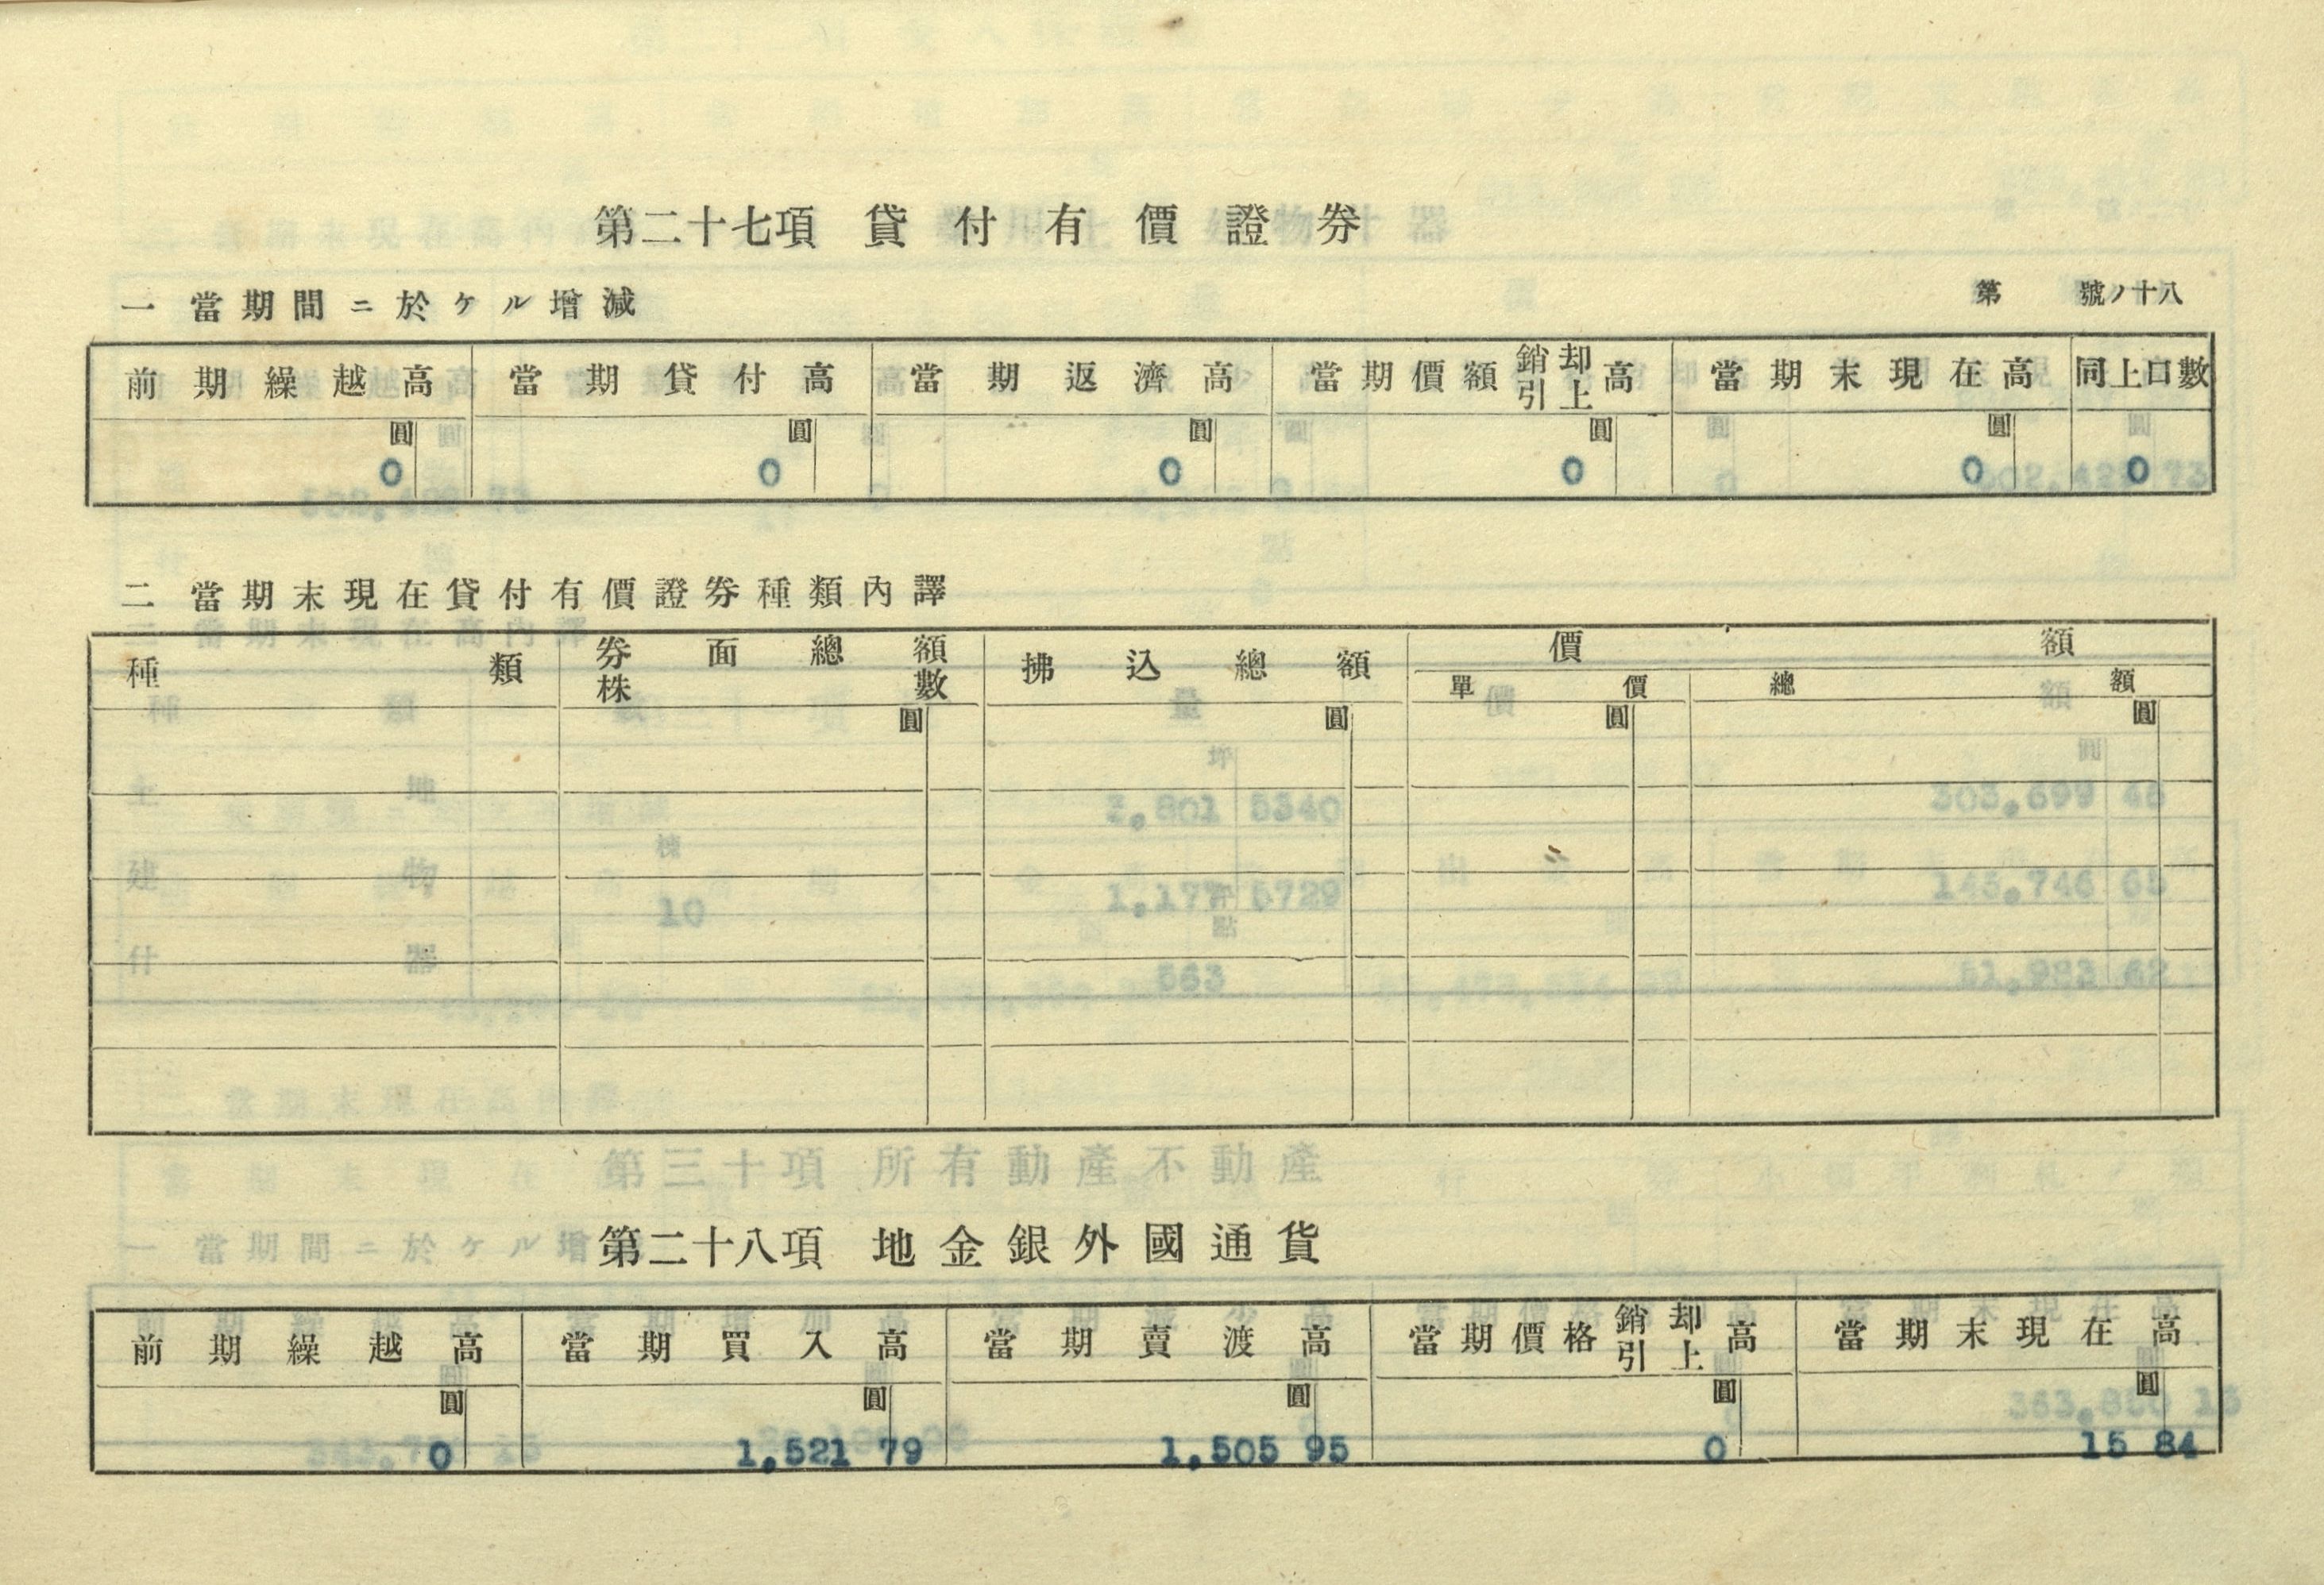 第二十七項 貸付有價證券
一 當期間ニ於ケル增減
第 號ノ十八
前期繰越高 當期貸付高 當期返濟高 當期價額銷却引上高 當期末現在高 同上口數
圓 圓 圓 圓 圓
0 0 0 0 0 0
二 當期末現在貸付有價證券種類內譯
種類 券面總額 株數 拂込總額 價額
單價 總額
圓 圓 圓 圓
第二十八項 地金銀外國通貨
前期繰越高 當期買入高 當期賣渡高 當期價格銷却引上高 當期末現在高
圓 圓 圓 圓 圓
0 1,521 79 1,505 95 0 15 84